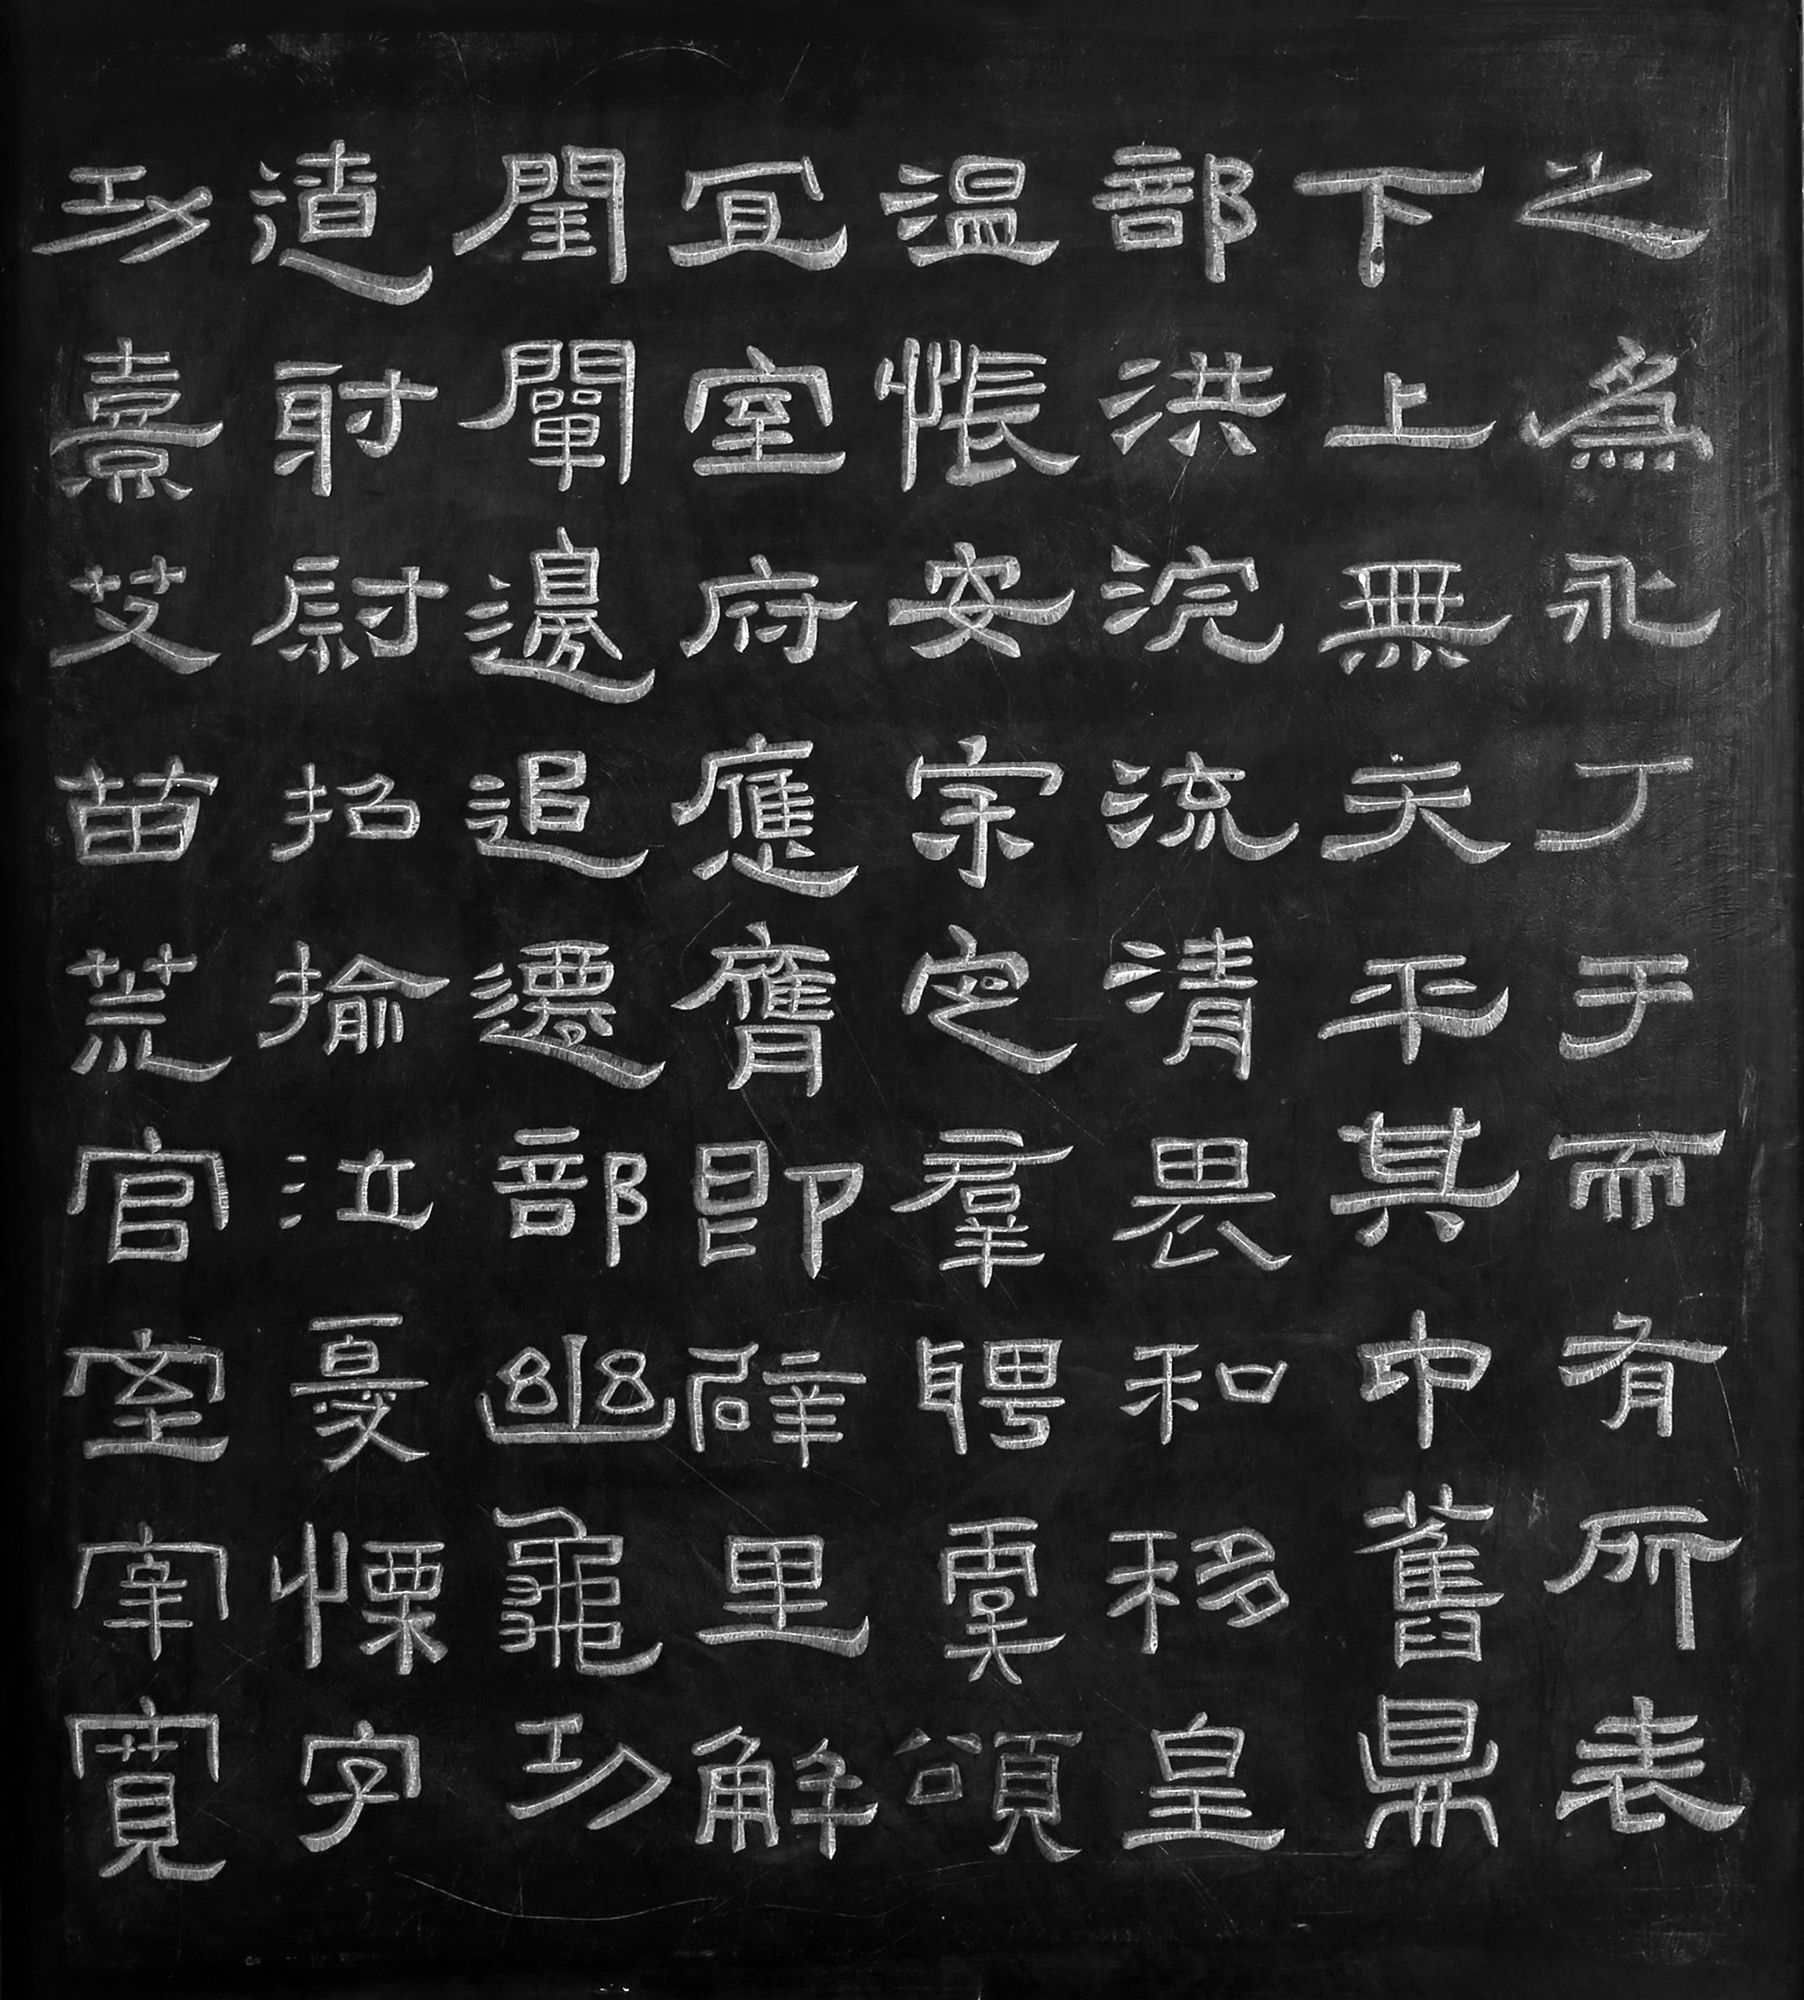 之為永丁于而有所表
下上無天平其中舊鼎
部洪浣流清畏和移皇
温帳安宗定羣聘虞頌
宜室府應膺即辟里解
閨闡邊追遷部幽龜功
射尉招揄泣憂慄字
功艾苗荒官室宰寬